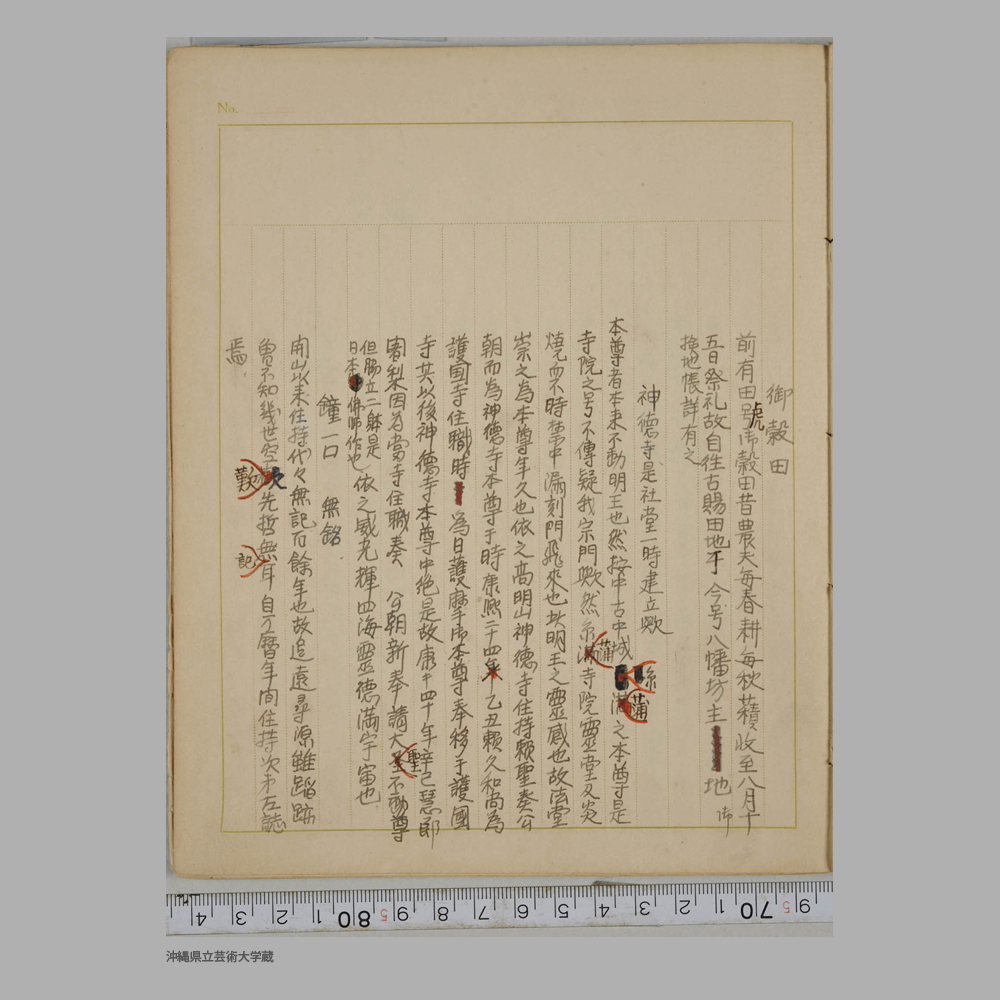 No.
御穀田
前有田号號御穀田昔農夫毎春耕毎秋蘓收至八月十
五日祭礼故自往古賜田地于今号八幡坊主地御
検地帳詳有之
神德寺是社堂一時建立歟
本尊者本来不動明王也然按中古中城 係 満 蒲 之本尊是
寺院之号不傳疑我宗門歟然 満 蒲 寺院霊堂又炎
焼而不時禁中漏刻門飛來也此明王之靈威也故法堂
崇之為本尊年久也依之高明山神德寺住持頼聖奏公
朝而為神德寺本尊于時康熙二十四年乙丑頼久和尚為
護國寺住職時 為日護摩御本尊奉移于護國
寺其以後神德寺本尊中絶是故康熙四十年辛巳慧郎
闍梨因為當寺住職奏 公朝新奉請大聖不動尊
但脇立二躰是日本佛師作也依之威光輝四海靈德満宇宙也
鐘一口 無銘
開山以来住持代々無記百餘年也故追遠尋源雖蹈跡
曽不知幾世空 歎 先哲無 記 耳自万暦年間住持次第左誌
焉.
4 3 2 1 80 9 5 8 7 6 5 4 3 2 1 70 5 9
沖縄県立芸術大学蔵